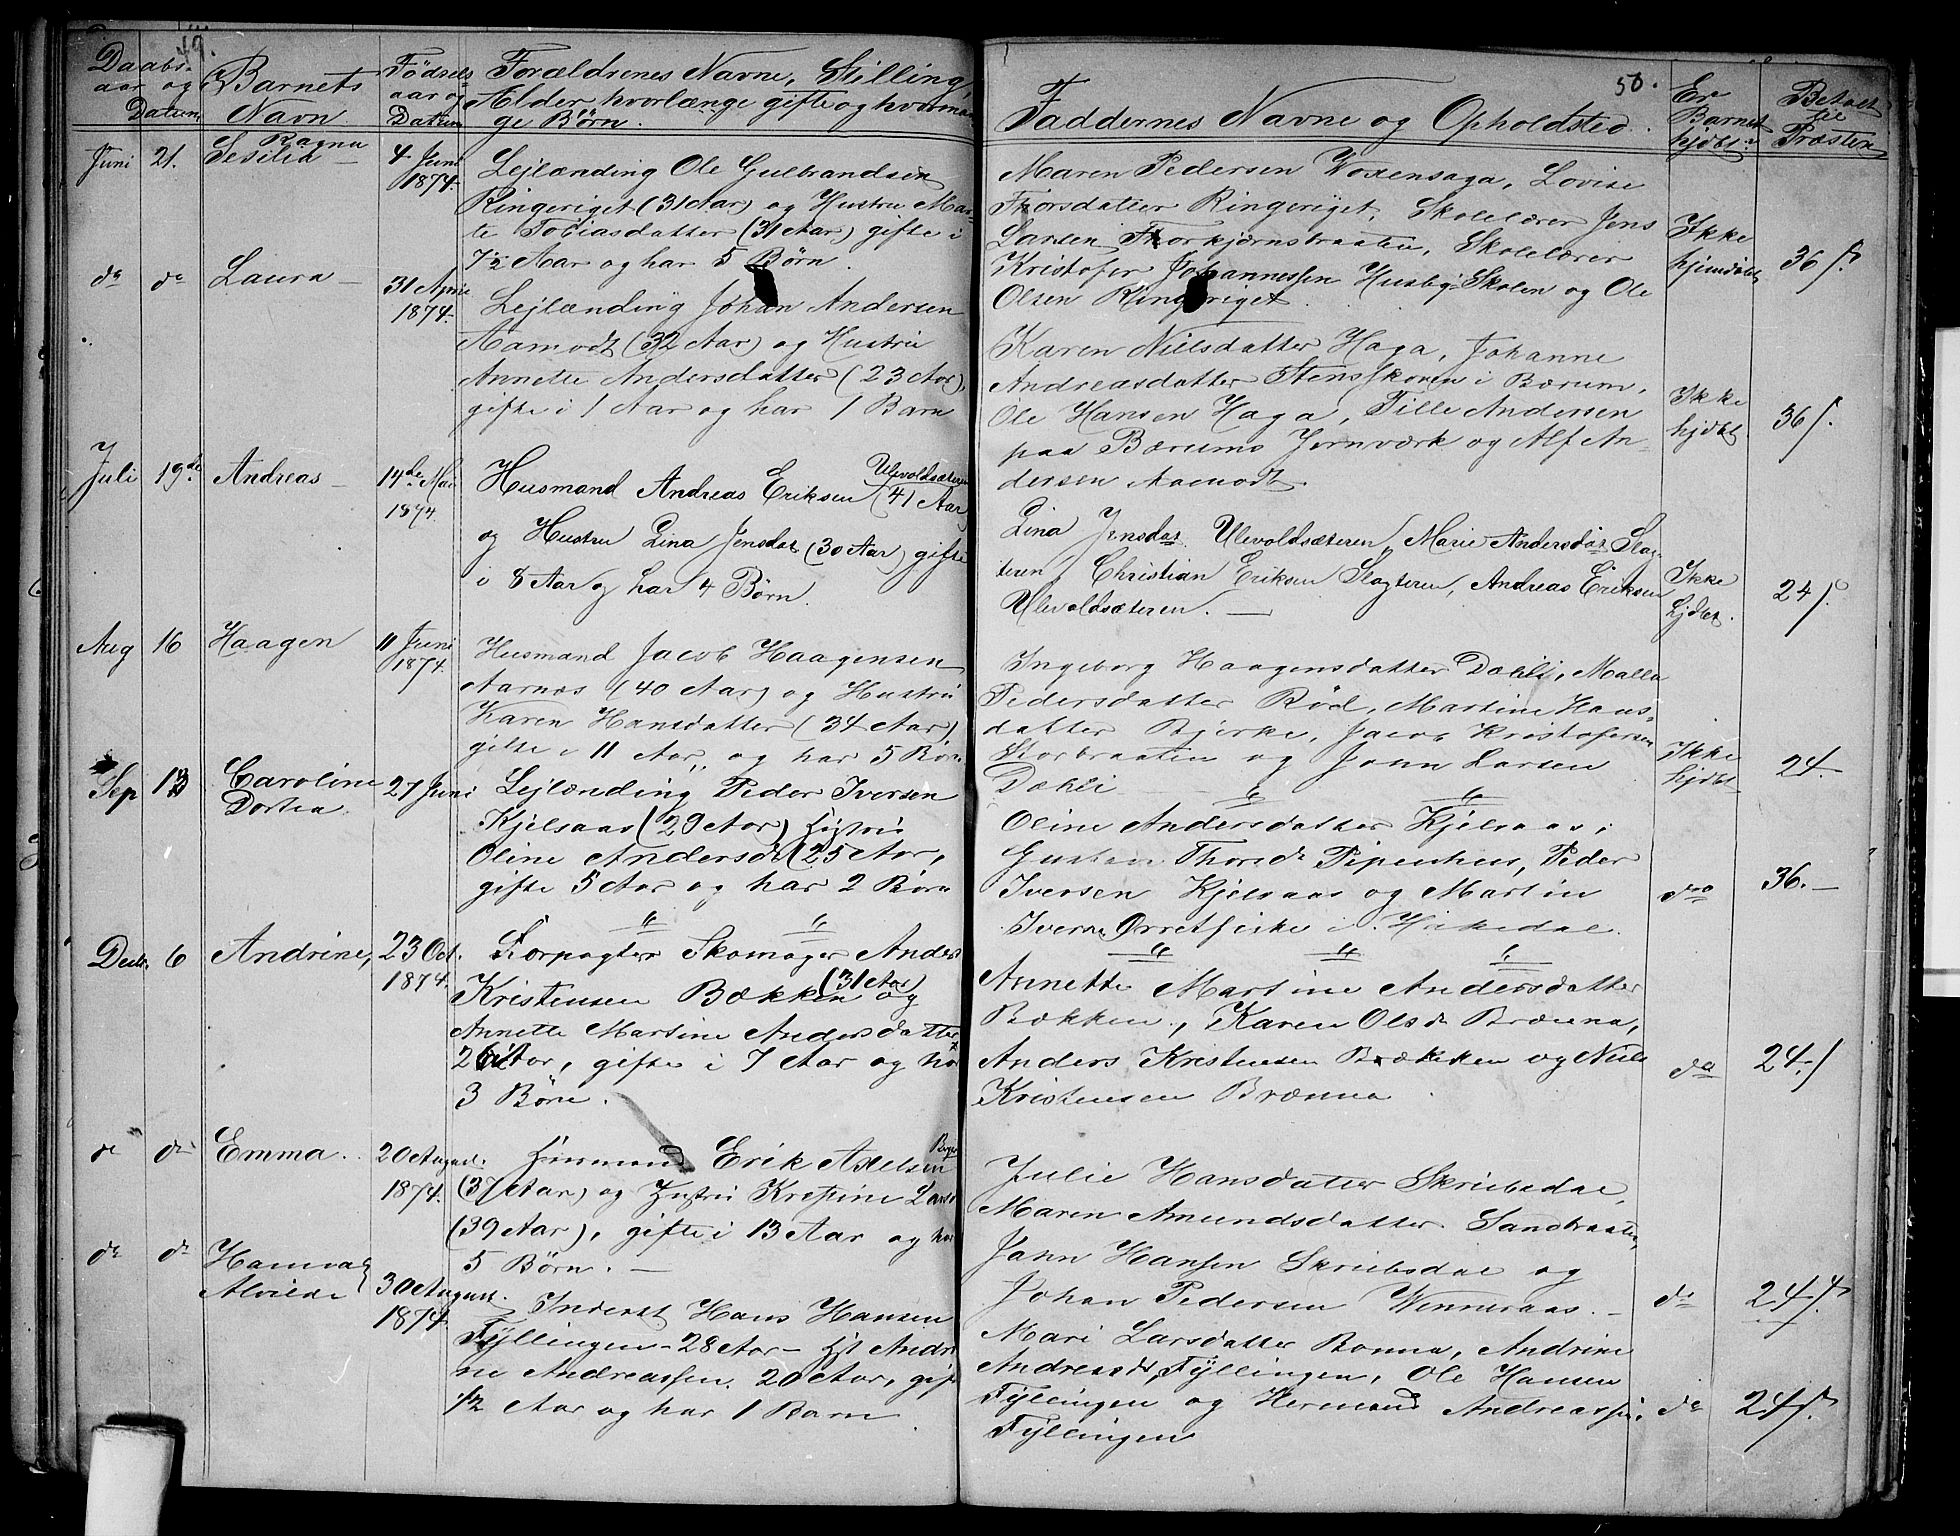 49.
Daabs-
aar og
Datum
Barnets
Navn
Fødsels
aar og
Datum
Forældrenes Navne, Stilling,
Alder, hvorlænge gifte og hvorman-
ge Børn.
Juni 21. Ragna
Sesilia —
4 Juni
1874.
Lejlænding Ole Gulbrandsen
Ringeriget (31 Aar) og Hustru Mar-
te Tobiasdatter (31 Aar) gifte i
7½ Aar og har 5 Børn.
do do Laura —
31 April
1874.
Lejlænding Johan Andersen
Aamodt (32 Aar) og Hustru
Annette Andersdatter (23 Aar),
gifte i 1 Aar og har 1 Barn
Juli 19de Andreas —
14de Mai
1874.
Ulevoldsæteren
Husmand Andreas Eriksen (41 Aar)
og Hustru Lina Jensdat (30 Aar) gifte
i 8 Aar og har 4 Børn.
Aug 16 Haagen
11 Juni
1874.
Husmand Jacob Haagensen
Aarnæs (40 Aar) og Hustru
Karen Hansdatter (34 Aar)
gifte i 11 Aar, og har 5 Børn
Sep 13 Caroline
Dortea
27 Juni
Lejlænding Peder Iversen
Kjelsaas (29 Aar) Hustru
Oline Andersdt (25 Aar,
gifte 5 Aar og har 2 Børn
Decbr. 6 Andrine,
23 Oct.
1874.
Forpagter Skomager Anders
(31 Aar)
Kristensen Bækken og
Annette Martine Andersdatter
26 Aar, gifte i 7 Aar og har
3 Børn.
do do Emma.
20 August.
1874.
Husmand Erik Axelsen
(37 Aar) og Hustru Krestine Larsd
(39 Aar), gifte i 13 Aar og har
5 Børn. —
do do Hanna
Alvilde
30 August.
1874.
Inderst Hans Hansen
Fyllingen - 28 Aar - Hst Andri
ne Andreassen. 20 Aar, gift
½ Aar og har 1 Barn
50.
Faddernes Navne og Opholdsted.
Er
Barnet
hjdbt?
Betalt
til
Præsten
Maren Pedersen Voxensaga, Lovise
Thorsdatter Ringeriget, Skolelærer Jens
Larsen Thorkjørnsbraaten, Skolelærer
Kristofer Johannessen Husby-Skolen og Ole
Olsen Ringeriget.
Ikke
hjemdøbt
36 s.
Karen Nielsdatter Haga, Johanne
Andreasdatter Stensskoven i Bærum,
Ole Hansen Haga, Tille Andersen
paa Bærums Jernværk og Alf An-
dersen Aamodt.
Ikke
hjdbt
36 s.
Lina Jensdat. Ulevoldsæteren, Marie Andersdat. Slag-
teren, Christian Eriksen Slagteren, Andreas Eriksen
Ulevoldsæteren. —
Ikke
hjdbt.
24 s.
Ingeborg Haagensdatter Dæhli, Malla
Pedersdatter Rød, Martine Hans-
datter Bjerke, Jacob Kristofersen
Storbraaten og John Larsen
Dæhli
Ikke
hjdbt
24.
Oline Andersdatter Kjelsaas,
Gusten Thorsdr Pipenhus, Peder
Iversen Kjelsaas og Martin
Iversen Ørretfiske i Hakedal.
do
36. —
Annette Martine Andersdatter
Bækken, Karen Olsdr Brænna,
Anders Kristensen Bækken og Niels
Kristensen Brænna
do
24. s
Julie Hansdatter Skriubsdal,
Maren Amundsdatter Sandbraaten,
John Hansen Skriubsdal og
Johan Pedersen Winneraas. —
do
24 s.
Mari Larsdatter Bonna, Andrine
Andreasdt, Fyllingen, Ole Hansen
Fyllingen og Hermand Andreassen,
Fyllingen
do
24 s.